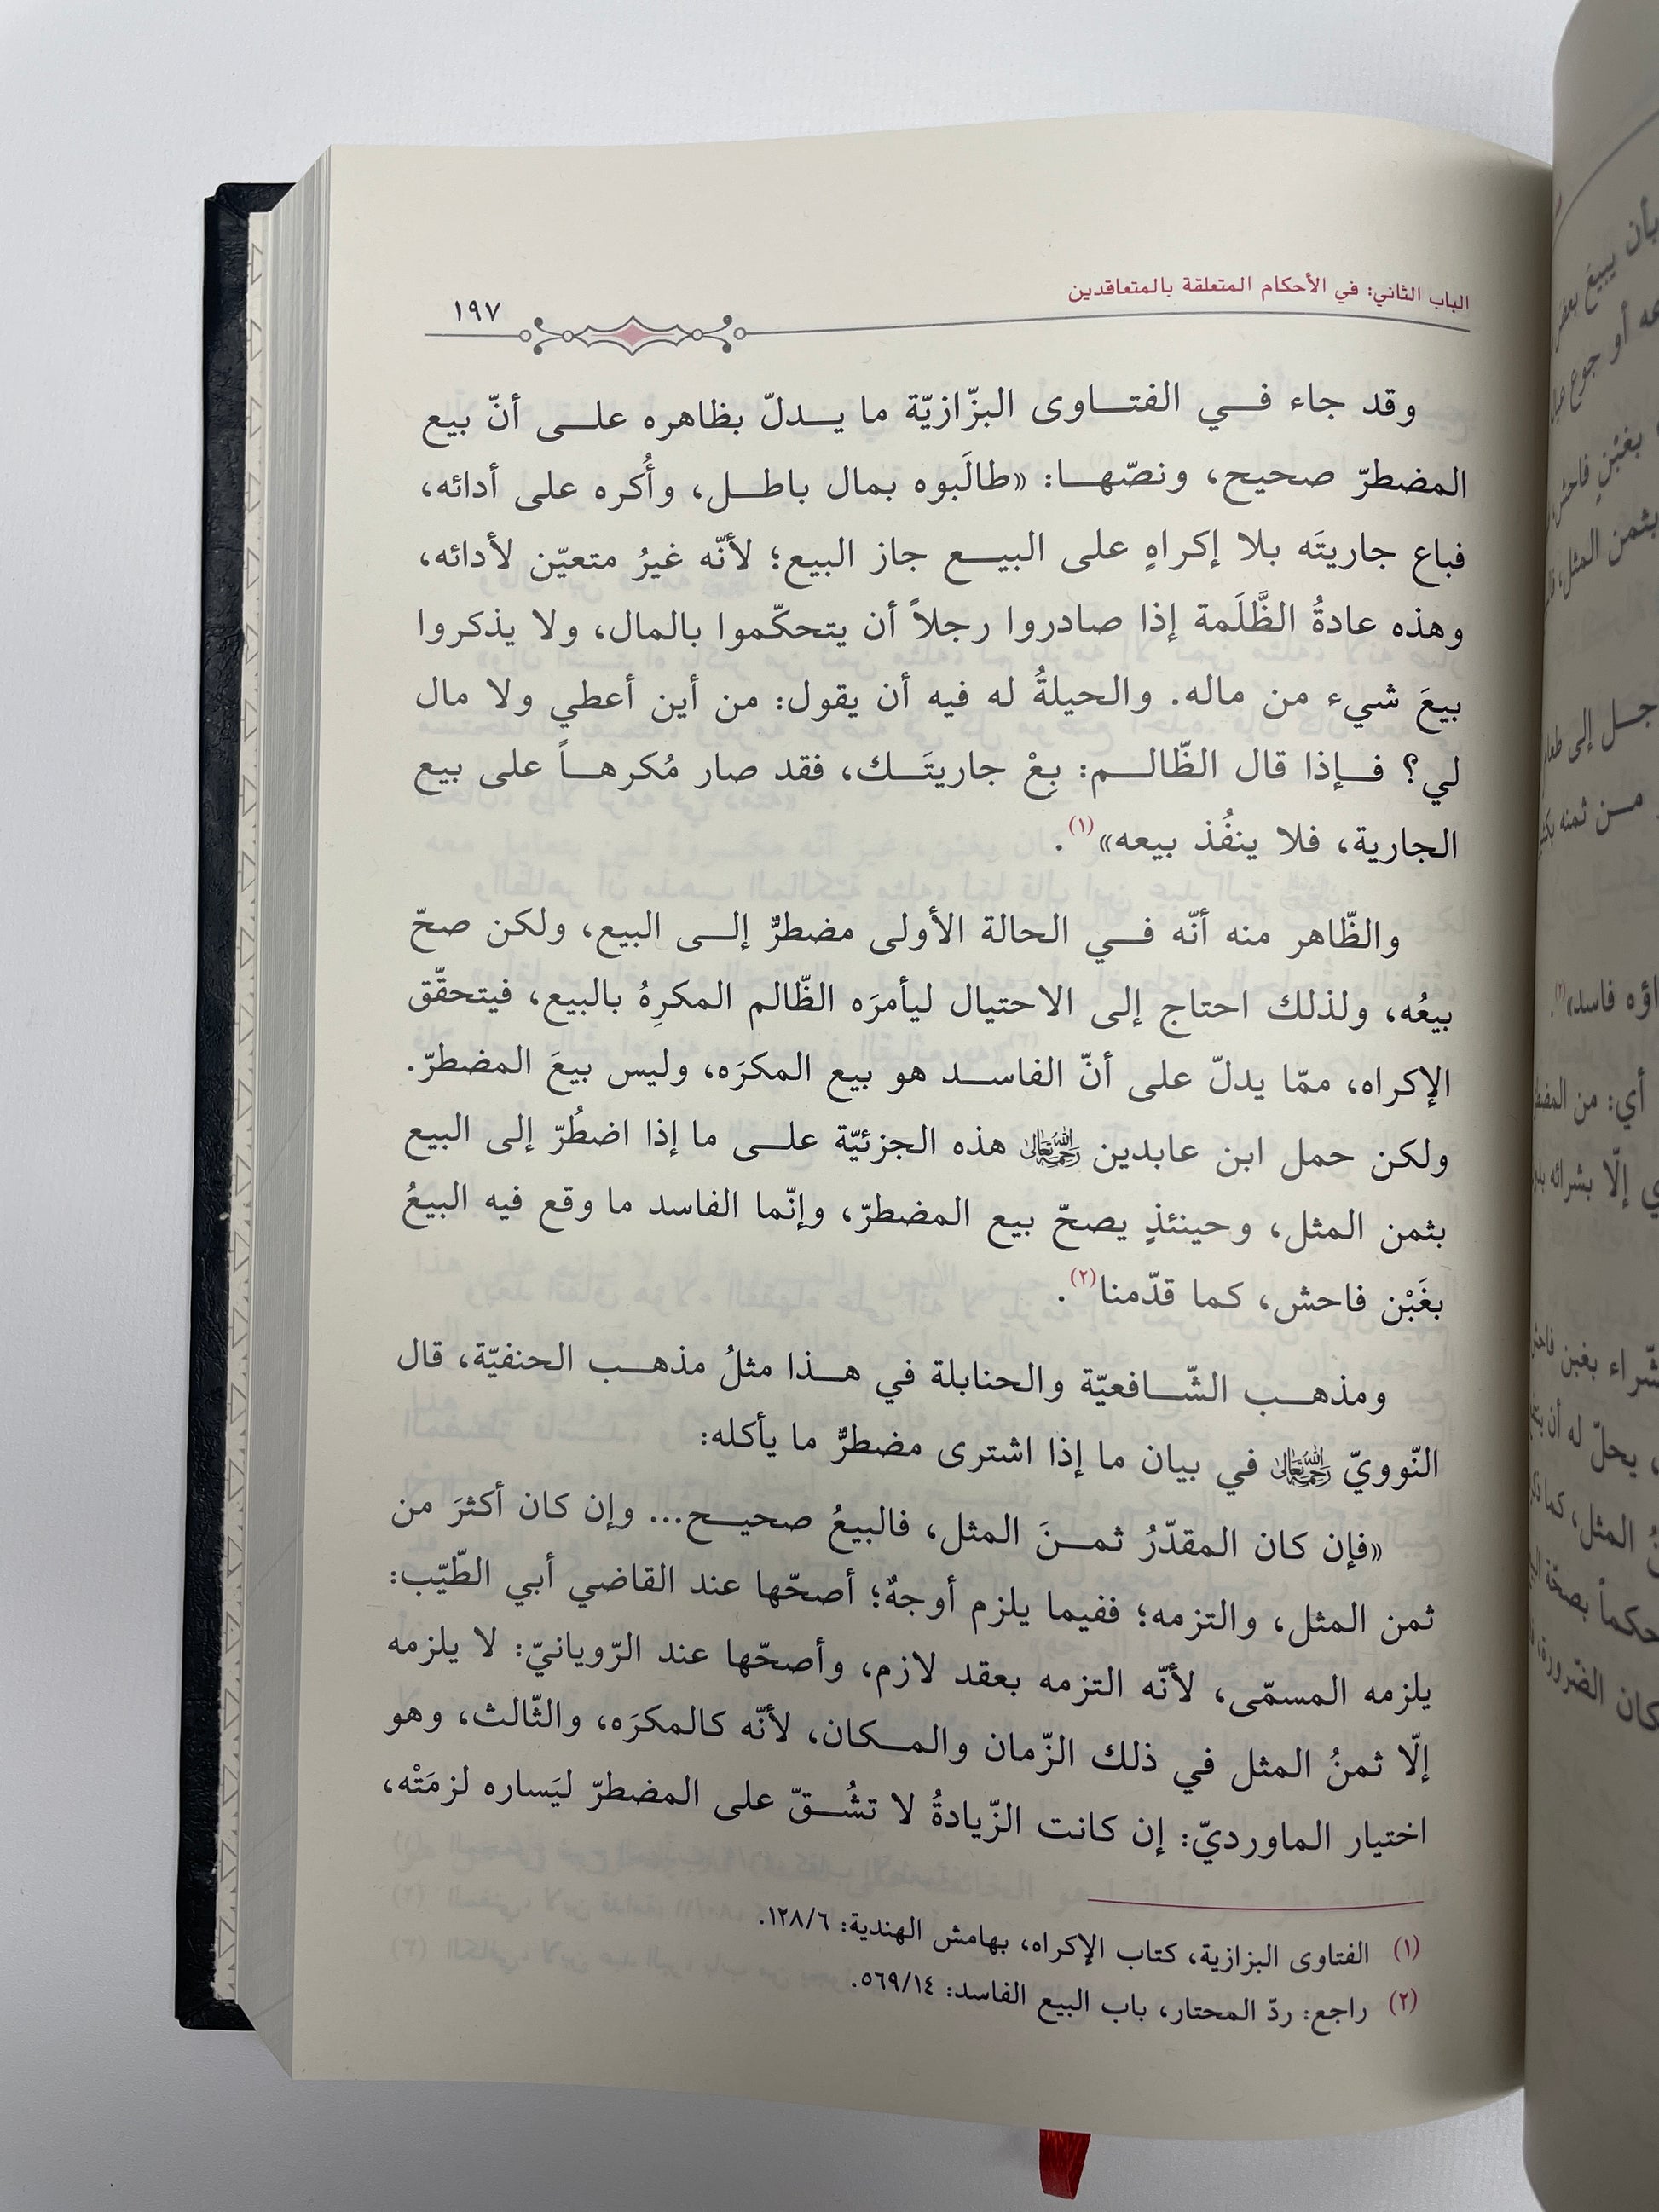 الباب الثاني: في الأحكام المتعلقة بالمتعاقدين
١٩٧
وقد جاء في الفتاوى البزّازيّة ما يدلّ بظاهره على أنّ بيع
المضطرّ صحيح، ونصّها: «طالَبوه بمال باطل، وأُكره على أدائه،
فباع جاريتَه بلا إكراهٍ على البيع جاز البيع؛ لأنّه غيرُ متعيّن لأدائه،
وهذه عادةُ الظَّلَمة إذا صادروا رجلاً أن يتحكّموا بالمال، ولا يذكروا
بيعَ شيء من ماله. والحيلةُ له فيه أن يقول: من أين أعطي ولا مال
لي؟ فإذا قال الظّالم: بِعْ جاريتَك، فقد صار مُكرهاً على بيع
الجارية، فلا ينفُذ بيعه»(١).
والظّاهر منه أنّه في الحالة الأولى مضطرٌّ إلى البيع، ولكن صحّ
بيعُه، ولذلك احتاج إلى الاحتيال ليأمرَه الظّالم المكرِهُ بالبيع، فيتحقّق
الإكراه، ممّا يدلّ على أنّ الفاسد هو بيع المكرَه، وليس بيعَ المضطرّ.
ولكن حمل ابن عابدين رحمه الله تعالى هذه الجزئيّة على ما إذا اضطُرّ إلى البيع
بثمن المثل، وحينئذٍ يصحّ بيع المضطرّ، وإنّما الفاسد ما وقع فيه البيعُ
بغَبْن فاحش، كما قدّمنا(٢).
ومذهب الشّافعيّة والحنابلة في هذا مثلُ مذهب الحنفيّة، قال
النّوويّ رحمه الله تعالى في بيان ما إذا اشترى مضطرٌّ ما يأكله:
«فإن كان المقدّرُ ثمنَ المثل، فالبيعُ صحيح... وإن كان أكثرَ من
ثمن المثل، والتزمه؛ ففيما يلزم أوجهٌ؛ أصحّها عند القاضي أبي الطّيّب:
يلزمه المسمّى، لأنّه التزمه بعقد لازم، وأصحّها عند الرّويانيّ: لا يلزمه
إلّا ثمنُ المثل في ذلك الزّمان والمكان، لأنّه كالمكرَه، والثّالث، وهو
اختيار الماورديّ: إن كانت الزّيادةُ لا تشُقّ على المضطرّ ليَساره لزمَتْه،
(١) الفتاوى البزازية، كتاب الإكراه، بهامش الهندية: ١٢٨/٦.
(٢) راجع: ردّ المحتار، باب البيع الفاسد: ٥٦٩/١٤.